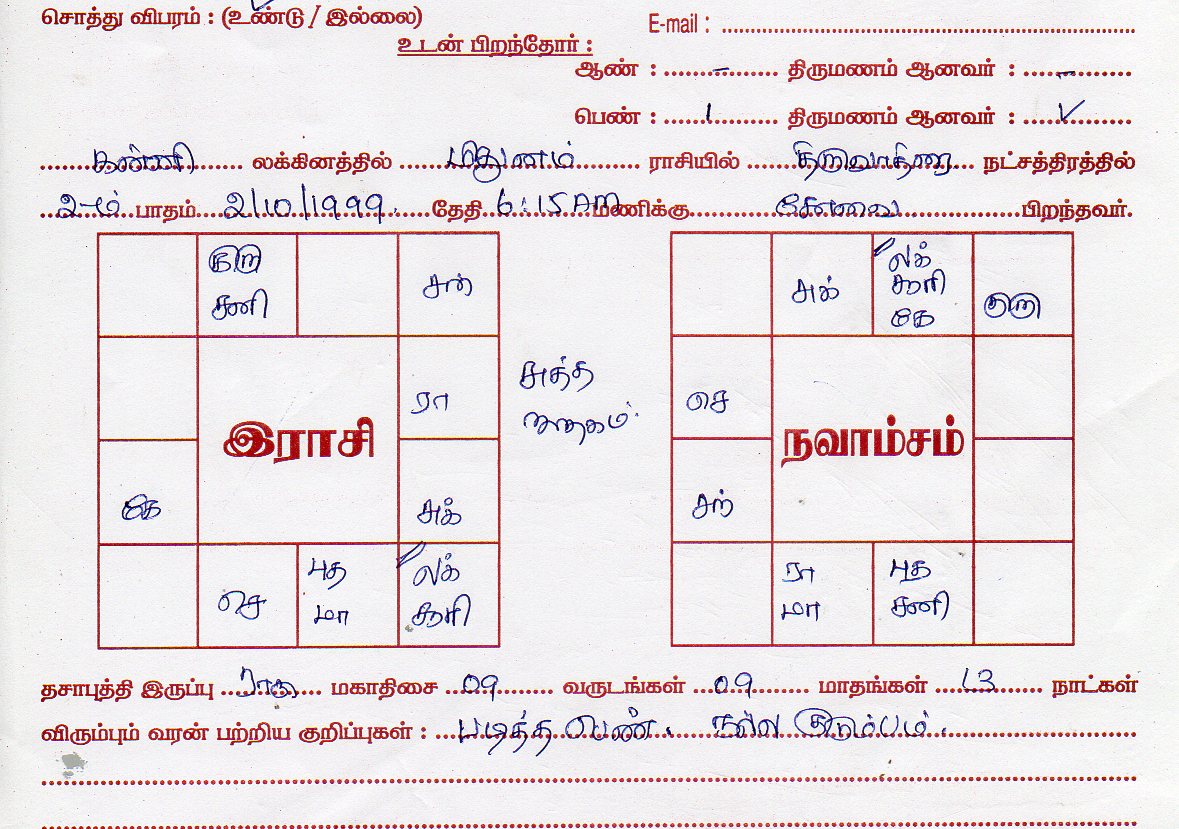 சொத்து விபரம் : (உண்டு / இல்லை)
E-mail : ............
உடன் பிறந்தோர் :
ஆண் : ......–...... திருமணம் ஆனவர் : ......–......
பெண் : ......1...... திருமணம் ஆனவர் : ......✓......
கன்னி லக்கினத்தில் மிதுனம் ராசியில் திருவாதிரை நட்சத்திரத்தில்
2-ம் பாதம் 2/10/1999 தேதி 6:15 AM மணிக்கு கோவை பிறந்தவர்.
குரு
சனி
சந்
ரா
கே
சுக்
செ
புத
மா
லக்
சூரி
இராசி
சுத்த
ஜாதகம்.
சுக்
லக்
சூரி
கே
குரு
செ
சந்
ரா
மா
புத
சனி
நவாம்சம்
தசாபுத்தி இருப்பு ராகு மகாதிசை 09 வருடங்கள் 09 மாதங்கள் 13 நாட்கள்
விரும்பும் வரன் பற்றிய குறிப்புகள் : படித்த பெண். நல்ல குடும்பம்.